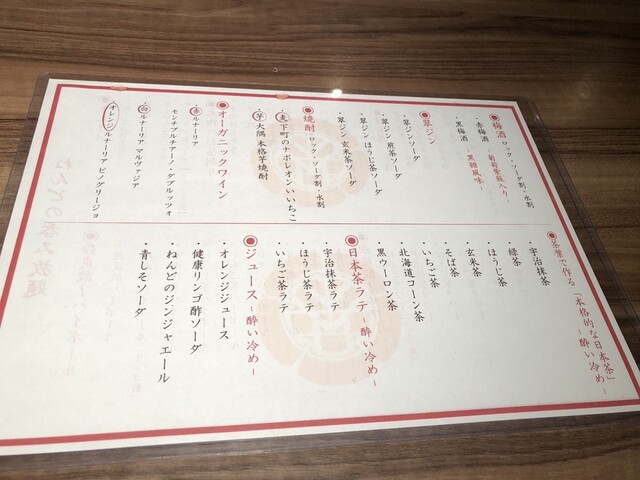 ◉梅酒 ロック・ソーダ割・水割
・赤梅酒 -葡萄紫蘇入り-
・黒梅酒 -黒糖風味-
◉翠ジン
・翠ジンソーダ
・翠ジン 煎茶ソーダ
・翠ジン ほうじ茶ソーダ
・翠ジン 玄米茶ソーダ
◉焼酎 ロック・ソーダ割・水割
・麦 下町のナポレオンいいちこ
・芋 大隅 本格芋焼酎
◉オーガニックワイン
・赤 ルナーリア
モンテプルチアーノ・ダブルッツォ
・白 ルナーリア マルヴァジア
・オレンジ ルナーリア ピノグリージョ
◉茶葉で作る「本格的な日本茶」
-酔い冷め-
・宇治抹茶
・緑茶
・ほうじ茶
・玄米茶
・そば茶
・いちご茶
・北海道コーン茶
・黒ウーロン茶
◉日本茶ラテ -酔い冷め-
・宇治抹茶ラテ
・ほうじ茶ラテ
・いちご茶ラテ
◉ジュース -酔い冷め-
・オレンジジュース
・健康リンゴ酢ソーダ
・ねんどのジンジャエール
・青しそソーダ
ねんどの呑み放題